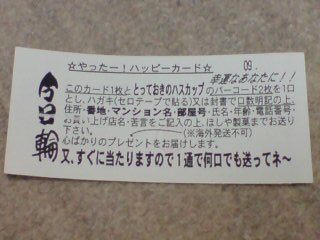 ☆やったー！ハッピーカード☆ 09.
幸運なあなたに！！
このカード1枚ととっておきのハスカップのバーコード2枚を1口
とし、ハガキ(セロテープで貼る)又は封書で口数明記の上、
住所・番地・マンション名・部屋号・氏名・年齢・電話番号・
お買い上げ店名・苦言をご記入の上、ほしや製菓までお送り
下さい。 (※海外発送不可)
心ばかりのプレゼントをお届けします。
又、すぐに当たりますので1通で何口でも送ってネ～